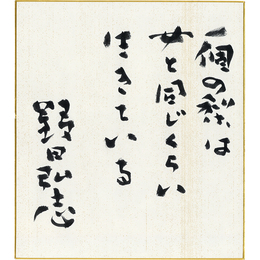 一個の梨は
女と同じくらい
生きている
野田弘志